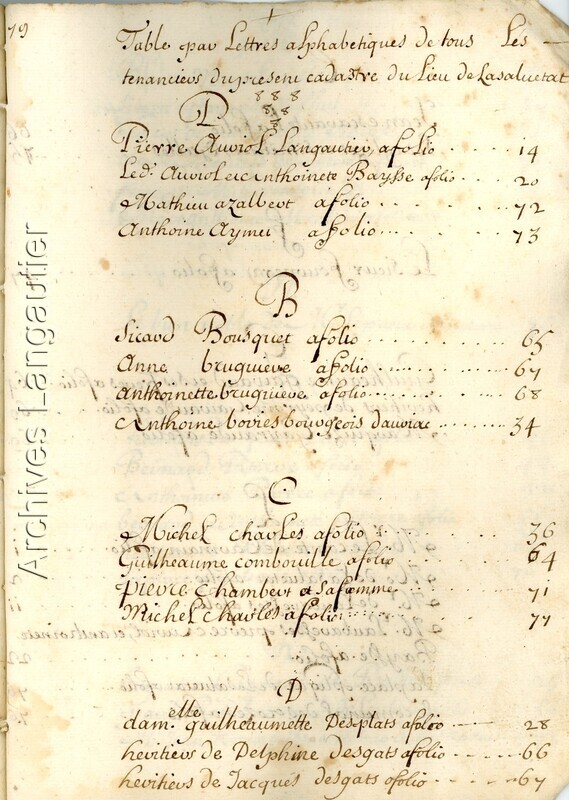 79
Table par Lettres alphabetiques de tous Les
tenanciers du present cadastre du Lieu de Lasalvetat
Pierre Auriol Langautier afolio 14
Led. Auriol et Anthoinete Baysse afolio 20
Mathieu azalbert afolio 72
Anthoine Aymer afolio 73
B
Sicard Bousquet afolio 65
Anne bruguiere afolio 67
anthoinette bruguiere afolio 68
Anthoine bories bourgeois dauriac 34
C
Michel charles afolio 36
Guilheaume combouille afolio 64
pierre chambert et safemme 71
Michel charles afolio 77
D
dam.elle guilheaumette Desplats afolio 28
heritiers de Delphine desgats afolio 66
heritiers de Jacques desgats afolio 67
Archives Langautier